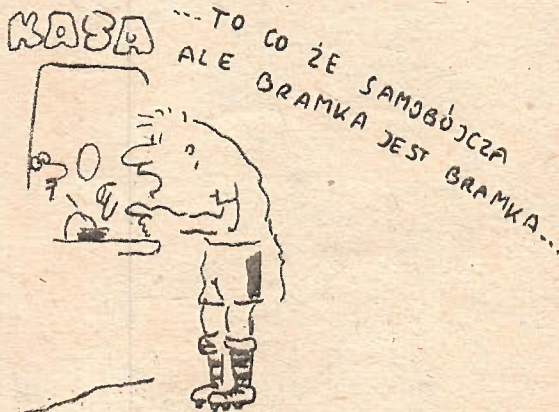 KASA
...TO CO ŻE SAMOBÓJCZA
ALE BRAMKA JEST BRAMKA...